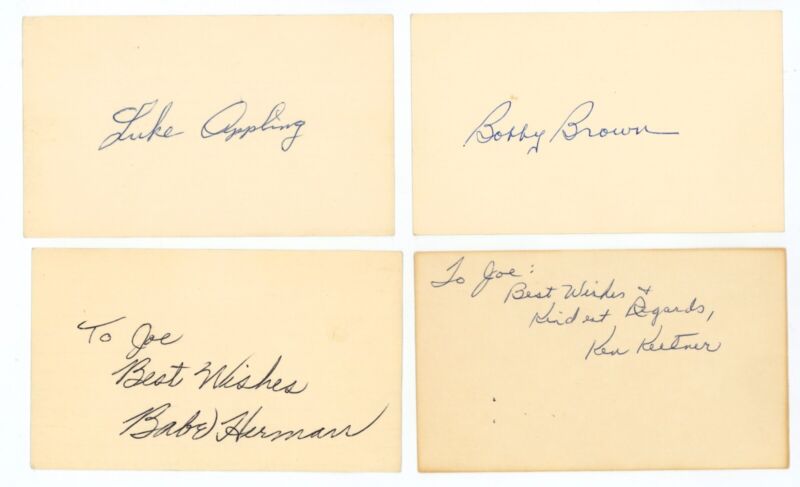 Luke Appling
Bobby Brown
To Joe
Best Wishes
Babe Herman
To Joe:
Best Wishes &
Kindest Regards,
Ken Keltner